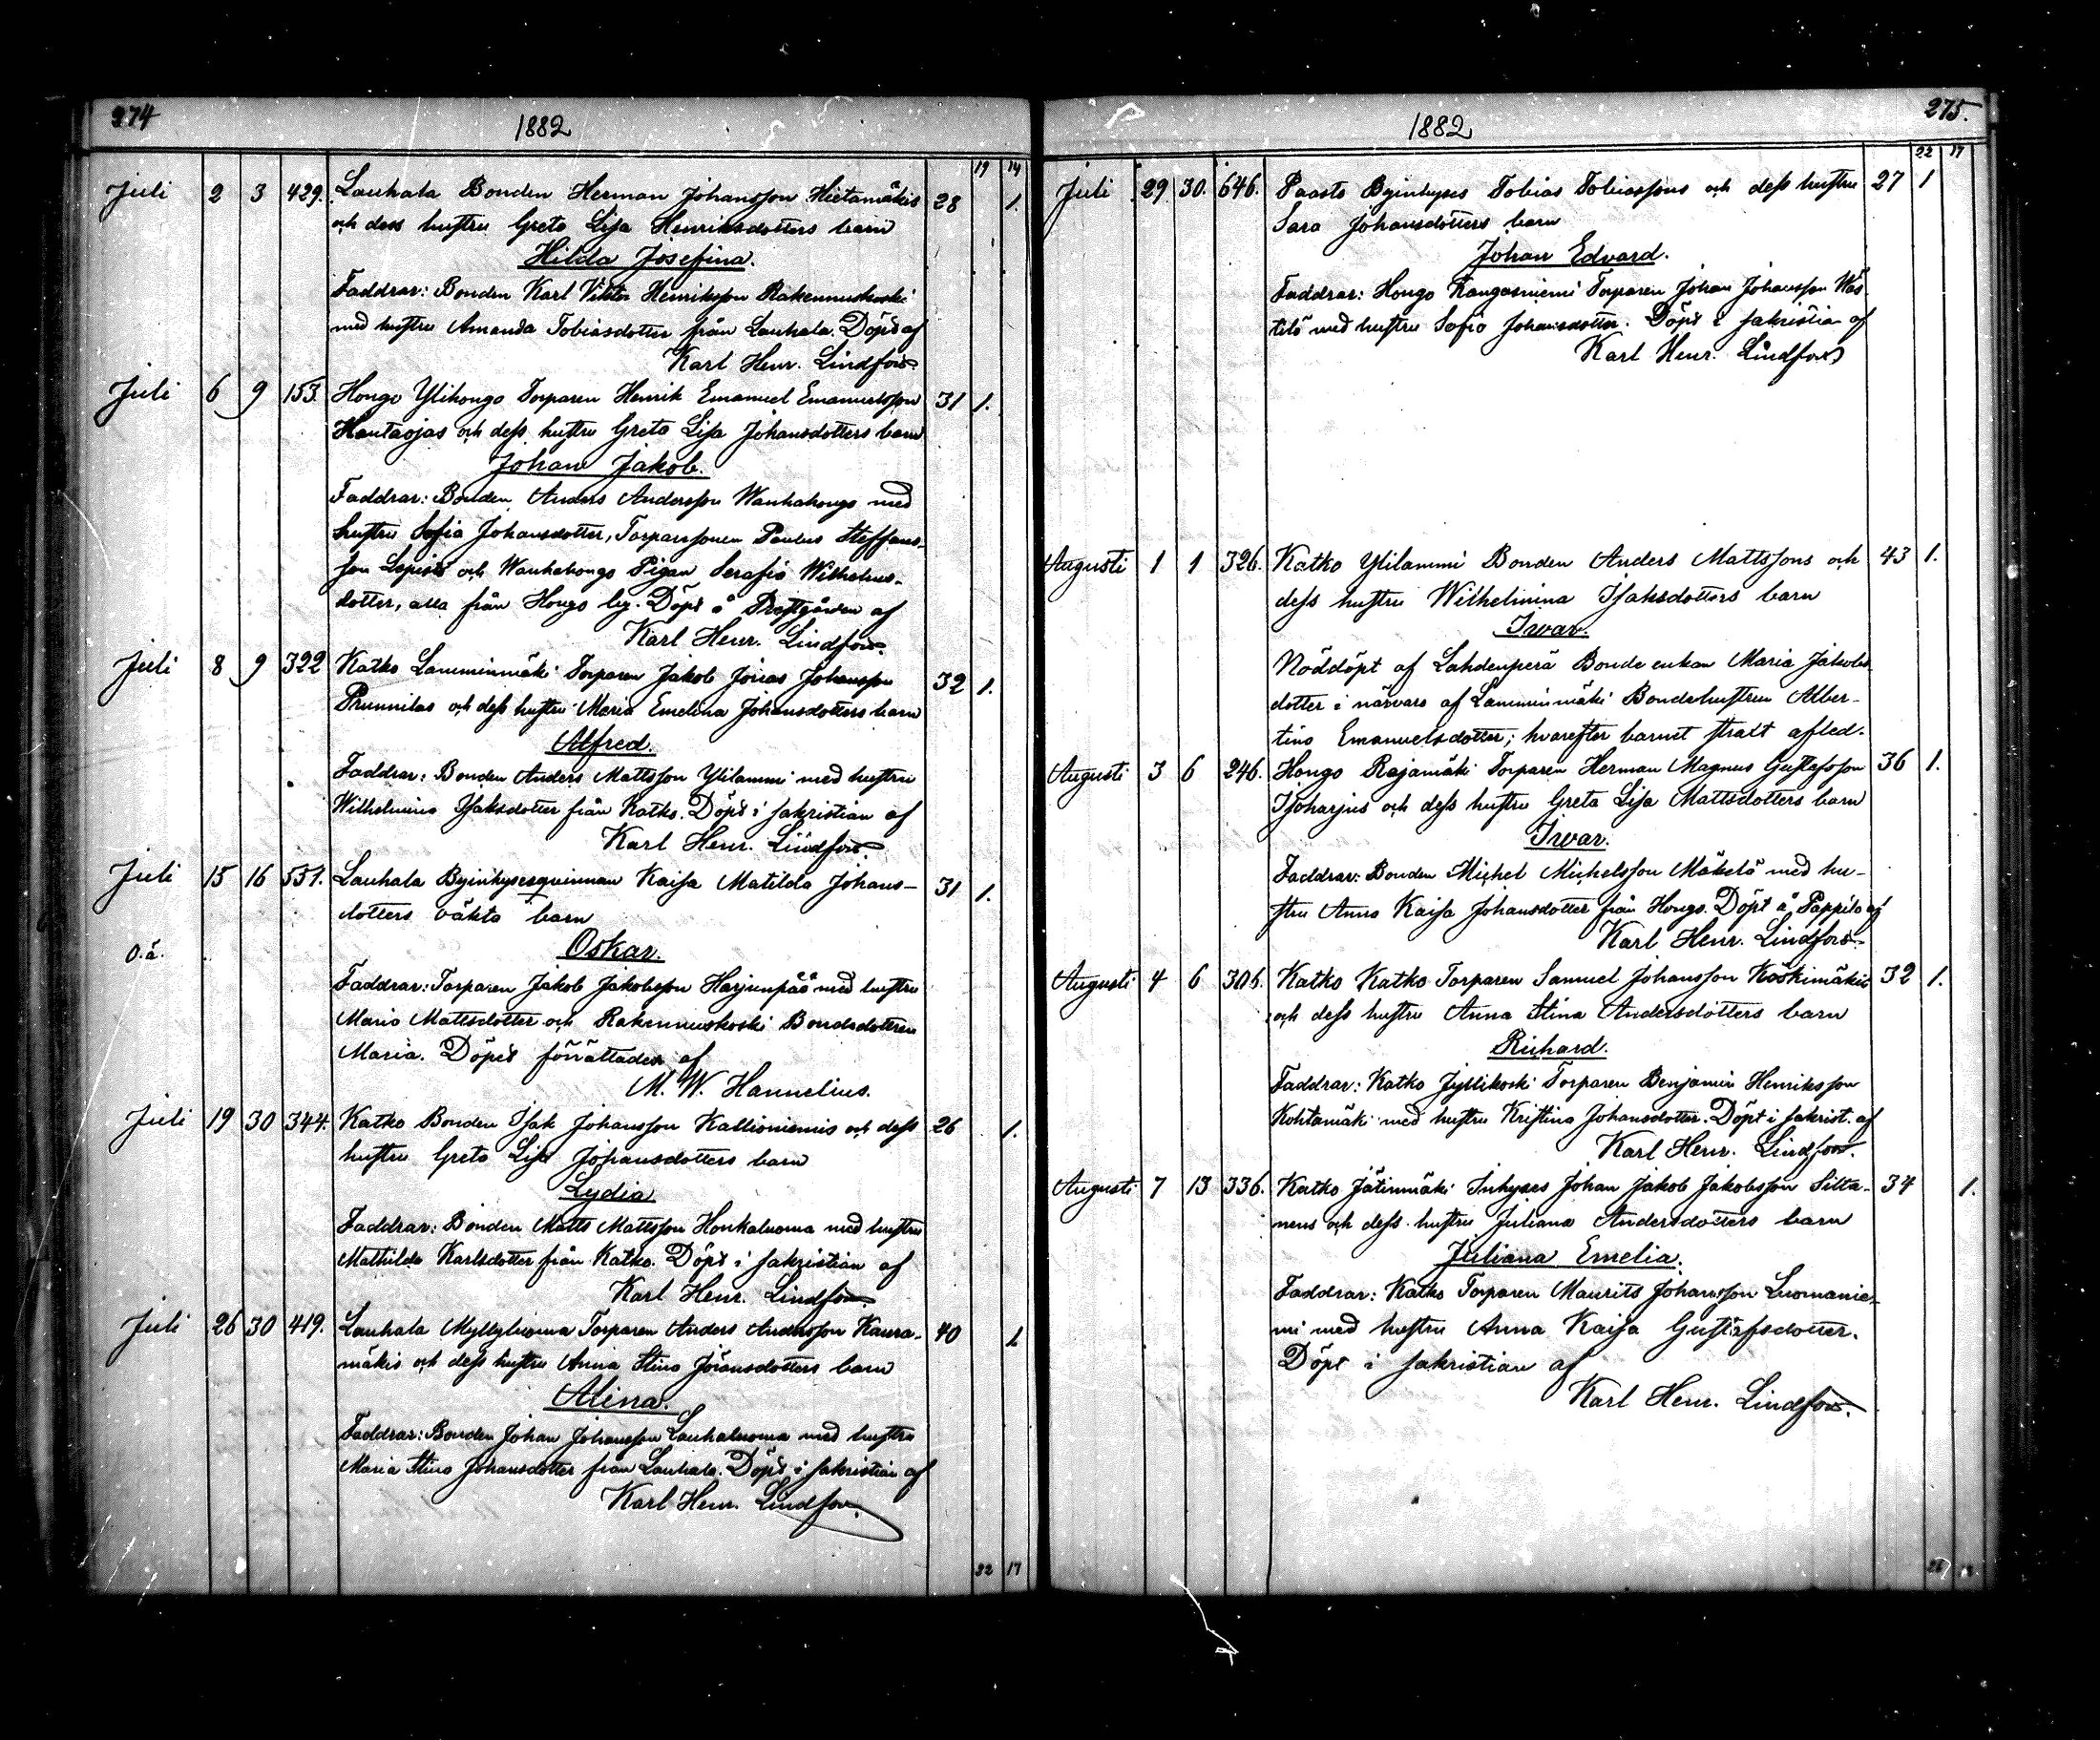 274
1882
19 14
Juli 2 3 429. Lauhala Bonden Herman Johansson Hietamäkis 28 1.
och dess hustru Greta Lisa Henriksdotters barn
Hilda Josefina.
Faddrar: Bonden Karl Viktor Henriksson Rakennuskoski
med hustru Amanda Tobiasdotter från Lauhala. Döpt af
Karl Henr. Lindfors
Juli 6 9 155. Hongo Ylihongo Torparen Henrik Emanuel Emanuelsson 31 1.
Hautaojas och dess hustru Greta Lisa Johansdotters barn
Johan Jakob.
Faddrar: Bonden Anders Andersson Wanhahongo med
hustru Sofia Johansdotter, Torparsonen Paulus Steffans-
son Lepistö och Wanhahongo Pigan Serafia Wilhelms-
dotter, alla från Hongo by. Döpt å Prestgården af
Karl Henr. Lindfors.
Juli 8 9 322 Katko Lamminmäki Torparen Jakob Joras Johansson 32 1.
Prunnilas och dess hustru Maria Emelina Johansdotters barn
Alfred.
Faddrar: Bonden Anders Mattsson Ylilammi med hustru
Wilhelmina Isaksdotter från Katko. Döpt i sakristian af
Karl Henr. Lindfors.
Juli 15 16 551. Lauhala Byinhysesqvinnan Kaisa Matilda Johans- 31 1.
dotters oäkta barn
o.ä. Oskar.
Faddrar: Torparen Jakob Jakobsson Harjunpää med hustru
Maria Mattsdotter och Rakennuskoski Bondsdottren
Maria. Döpet förrättades af
M. W. Hannelius.
Juli 19 30 344. Katko Bonden Isak Johansson Kallioniemis och dess 26 1.
hustru Greta Lisa Johansdotters barn
Lydia
Faddrar: Bonden Matts Mattsson Honkaluoma med hustru
Mathilda Karlsdotter från Katko. Döpt i sakristian af
Karl Henr. Lindfors.
Juli 26 30 419. Lauhala Myllyluoma Torparen Anders Andersson Kaura- 40 1.
mäkis och dess hustru Anna Stina Johansdotters barn
Alina.
Faddrar: Bonden Johan Johansson Lauhaluoma med hustru
Maria Stina Johansdotter från Lauhala. Döpt i sakristian af
Karl Henr. Lindfors.
22 17
275.
1882
22 17
Juli 29 30. 646. Paasto Byinhyses Tobias Tobiassons och dess hustru 27 1
Sara Johansdotters barn
Johan Edvard.
Faddrar: Hongo Kangasniemi Torparen Johan Johansson Wäs-
tilö med hustru Sofia Johansdotter. Döpt i sakristian af
Karl Henr. Lindfors
Augusti 1 1 326. Katko Ylilammi Bonden Anders Mattssons och 43 1.
dess hustru Wilhelmina Isaksdotters barn
Ivar.
Nöddöpt af Lahdenperä Bonde enkan Maria Jakobs-
dotter i närvaro af Lamminmäki Bondehustrun Alber-
tina Emanuelsdotter; hvarefter barnet strax afled.
Augusti 3 6 246. Hongo Rajamäki Torparen Herman Magnus Gustafsson 36 1.
Isoharjus och dess hustru Greta Lisa Mattsdotters barn
Ivar.
Faddrar: Bonden Michel Michelsson Mäkelä med hu-
stru Anna Kaisa Johansdotter från Hongo. Döpt å Pappila af
Karl Henr. Lindfors.
Augusti 4 6 306. Katko Katko Torparen Samuel Johansson Koskimäkis 32 1.
och dess hustru Anna Stina Andersdotters barn
Richard.
Faddrar: Katko Jyllikoski Torparen Benjamin Henriksson
Kohtamäki med hustru Kristina Johansdotter. Döpt i sakrist. af
Karl Henr. Lindfors.
Augusti 7 13 336. Katko Jätinmäki Inhyses Johan Jakob Jakobsson Silta- 34 1.
nens och dess hustru Juliana Andersdotters barn
Juliana Emelia.
Faddrar: Katko Torparen Maurits Johansson Luomanie-
mi med hustru Anna Kaisa Gustafsdotter.
Döpt i sakristian af
Karl Henr. Lindfors.
26 18